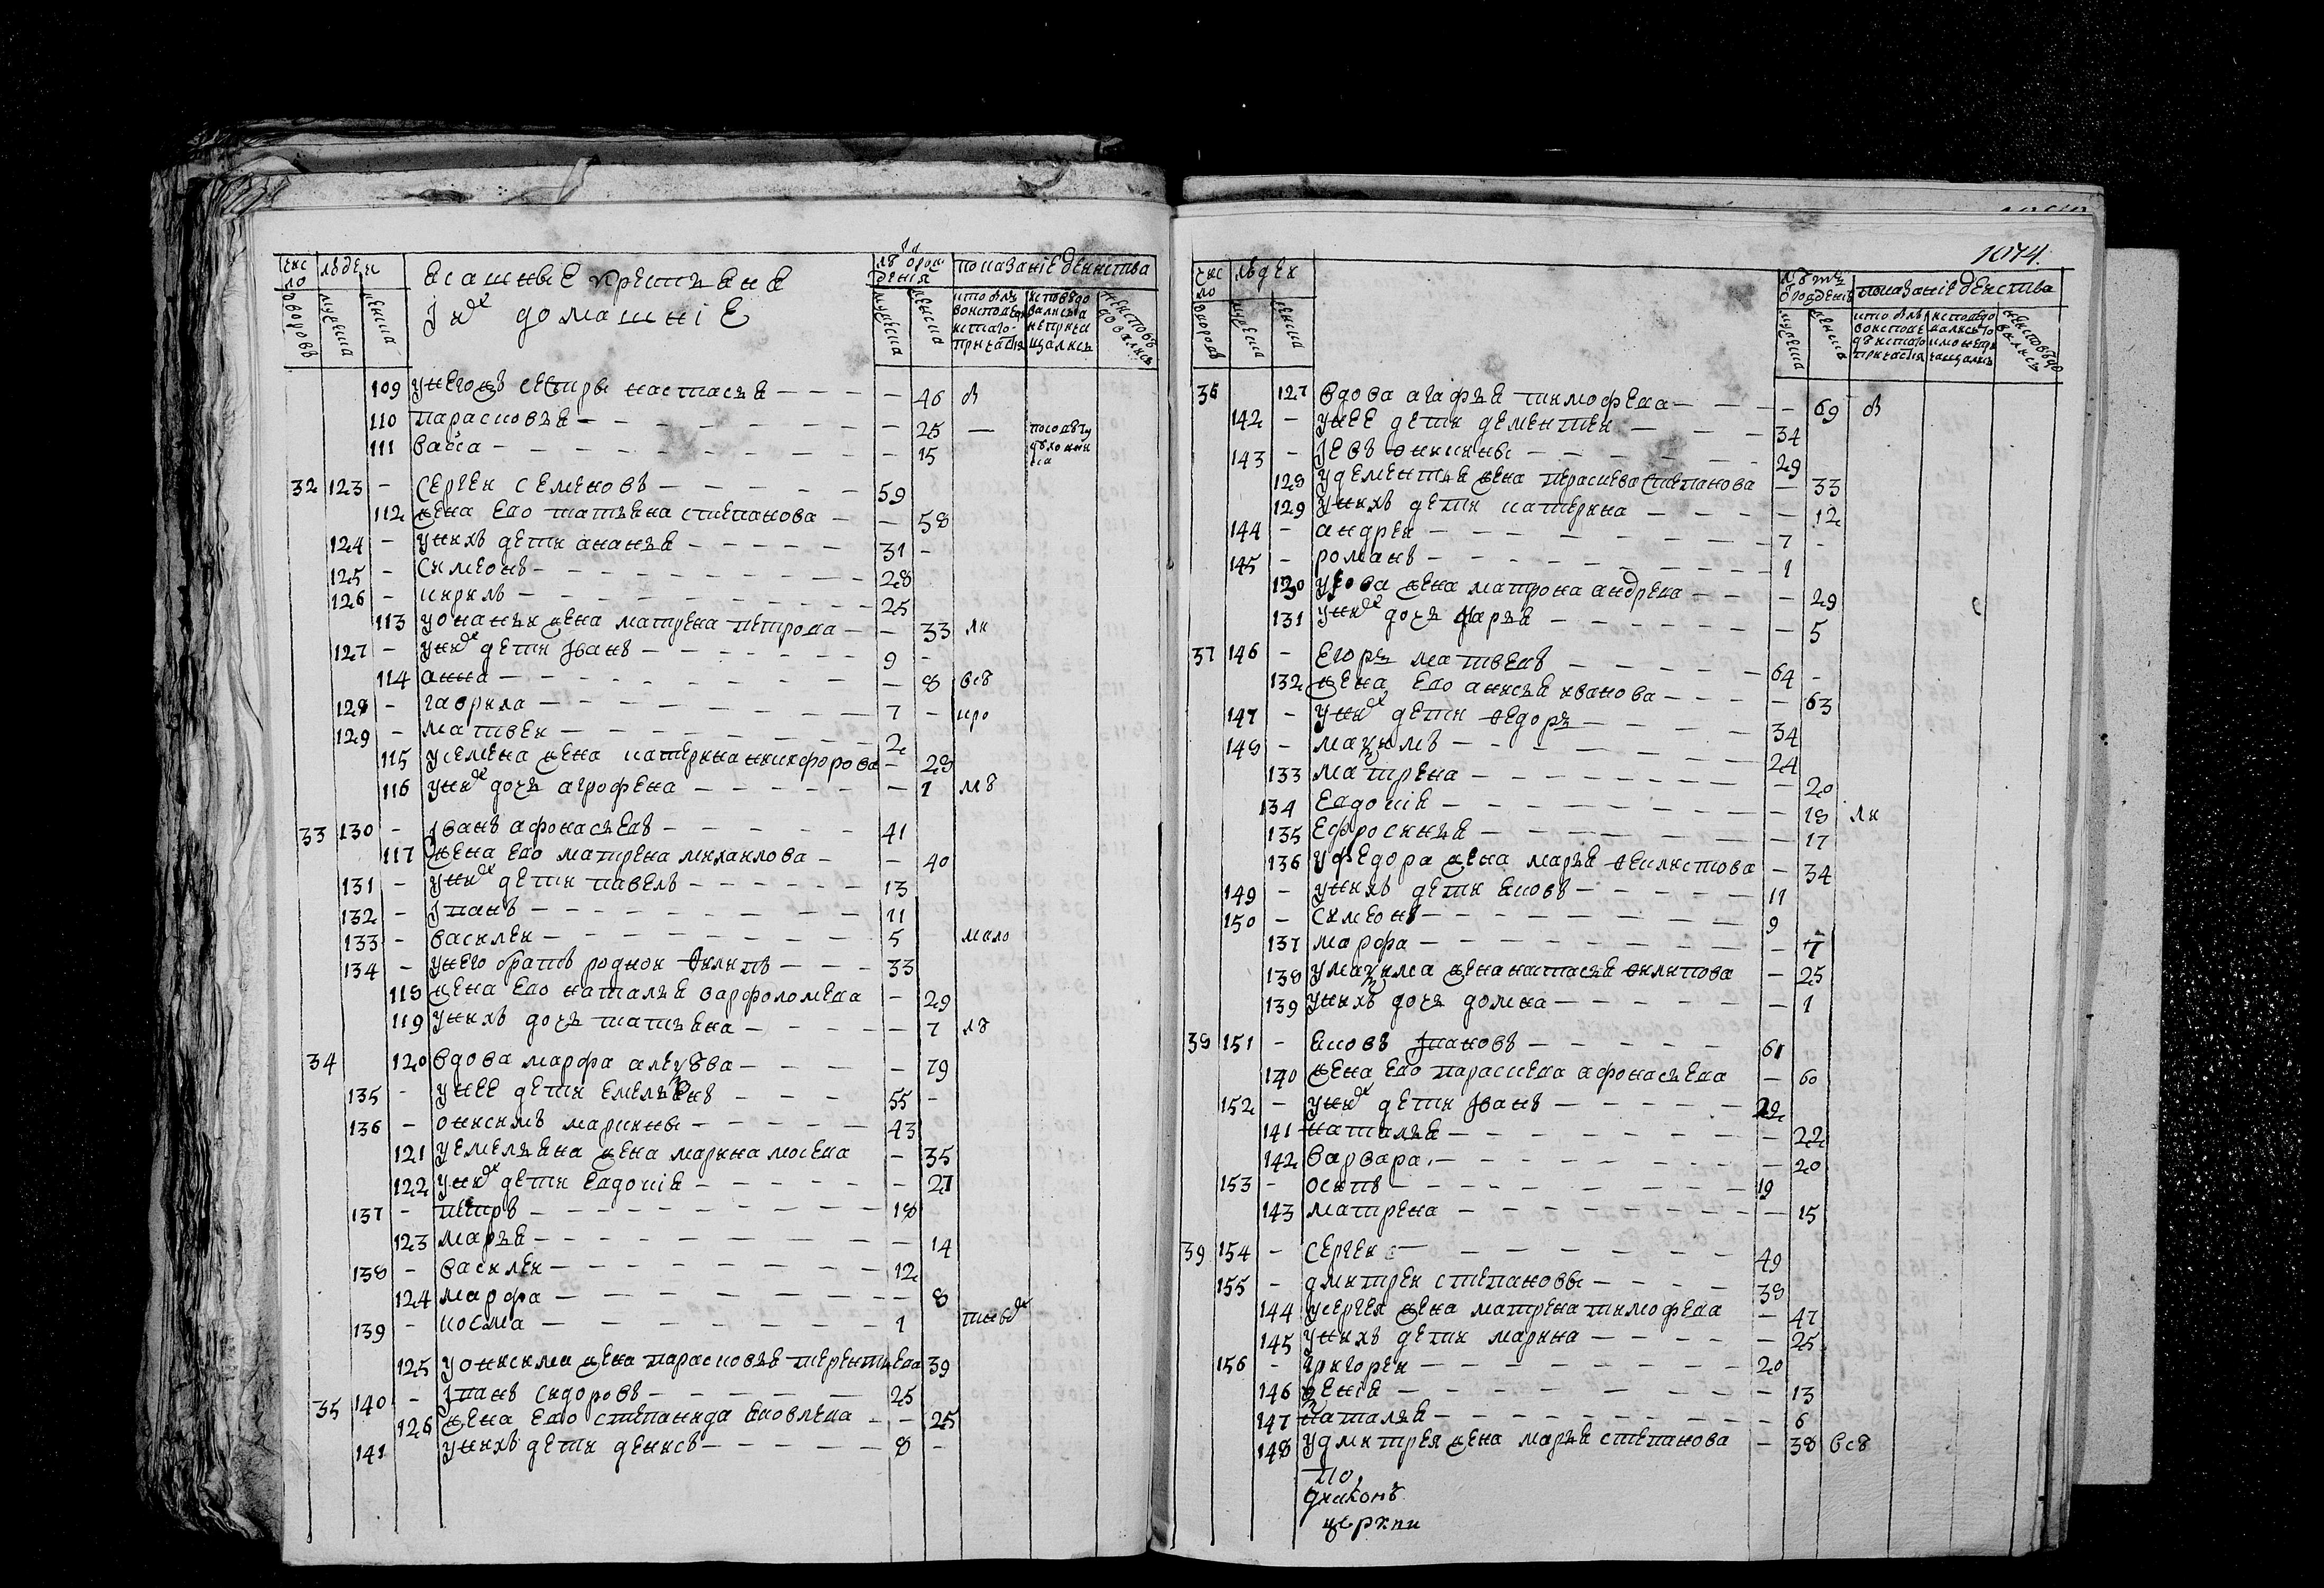 чис
ло людеи
дворовъ мужеска женска
Ясашные крестьяня
Iихъ домашнiе
лѣ ѿрож
денiя
мужеска женска
показанiе деиства
кто былъ
во исповеди
и с̾таго
причастiя
исповедо
вались а
не прича
щались
не исповѣ
довались
109 у него жъ сестры настасья — — — 46 б
110 парасковья — — — 25 — по скѣту
дѣхонин
ка
111 васса — — — 15
32 123 - Сергеи Семеновъ — — — 59
112 жена ево татьяна степанова — — 58
124 - у нихъ дети ананья — — — 31 -
125 - Симеонъ — — — 28
126 - кирилъ — — — 25
113 у онаньи жена матрена петрова — — 33 ли
127 - у ниⷯ дети Iванъ — — — 9 -
114 анна — — — 8 всѣ
128 - гаврила — — — 7 - про
129 - матвеи — — — 2
115 у семена жена катерина никифорова — 28
116 у ниⷯ дочь агрофена — — — 1 мѣ
33 130 - Iванъ афонасьевъ — — — 41
117 жена ево матрена михаилова — — 40
131 - у ниⷯ дети павелъ — — — 13
132 - Iпанъ — — — 11
133 - василеи — — — 5 мало
134 - у него братъ роднои Филипъ — — — 33
118 жена ево наталья варфоломева — 29
119 у нихъ дочь татьяна — — — 7 лѣ
34 120 вдова марфа алеѯѣва — — — 79
135 - у нее дети емельянъ — — — 55 -
136 - онисимъ маркины — — — 43
121 у емельяна жена марина мосева — 35
122 у ниⷯ дети евдокiя — — — 21
137 - петръ — — — 18
123 марья — — — 14
138 - василеи — — — 12
124 марфа — — — 8
139 - косма — — — 1
125 у онисима жена парасковья терентьева 39
35 140 - Iпанъ Сидоровъ — — — 25
126 жена ево степанида яковлева — — 25
141 у нихъ дети денисъ — — — 8 -
1074.
чис
ло людеи
дворовъ мужеска женска
лѣтъ
ѿ рожденiя
мужеска женска
показанiе деиства
кто былъ
во испове
ди и с̾таго
причастiя
исповедо
вались то
лико не при
чащались
не исповѣдо
вались
36 127 вдова агафья тимофева — — — 69 б
142 - у нее дети дементеи — — — 34
143 - Iевъ Фикины — — — 29
128 у дементья жена пераскева степанова — 33
129 у нихъ дети катерина — — — 12
144 - андреи — — — 7 -
145 - романъ — — — 1
130 у ѥова жена матрона андрева — — 29
131 у ниⷯ дочь марья — — — 5
37 146 - Егоръ матвевъ — — — 64 -
132 жена ево анисья иванова — — — 63
147 - у ниⷯ дети Федоръ — — — 34
148 - маѯимъ — — — 24
133 матрена — — — 20
134 евдокiя — — — 18 ли
135 ефросинья — — — 17
136 у федора жена марья Феилистова — 34
149 - у нихъ дети яковъ — — — 11
150 - Симеонъ — — — 9
137 марфа — — — 7
138 у маѯима жена настасья Филипова — 25
139 у нихъ дочь домна — — — 1
38 151 - яковъ Iпановъ — — — 61
140 жена ево параскева афонасьева — 60
152 - у ниⷯ дети Iванъ — — — 22
141 наталья — — — 22
142 варвара — — — 20
153 - осипъ — — — 19
143 матрена — — — 15
39 154 - Сергеи — — — 49
155 - дмитреи степановы — — — 38
144 у сергея жена матрена тимофева — 47
145 у нихъ дети марина — — — 25
156 - григореи — — — 20
146 ѯенiя — — — 13
147 наталья — — — 6
148 у дмитрея жена марья степанова — 38 всѣ
По
диаконъ
церкви